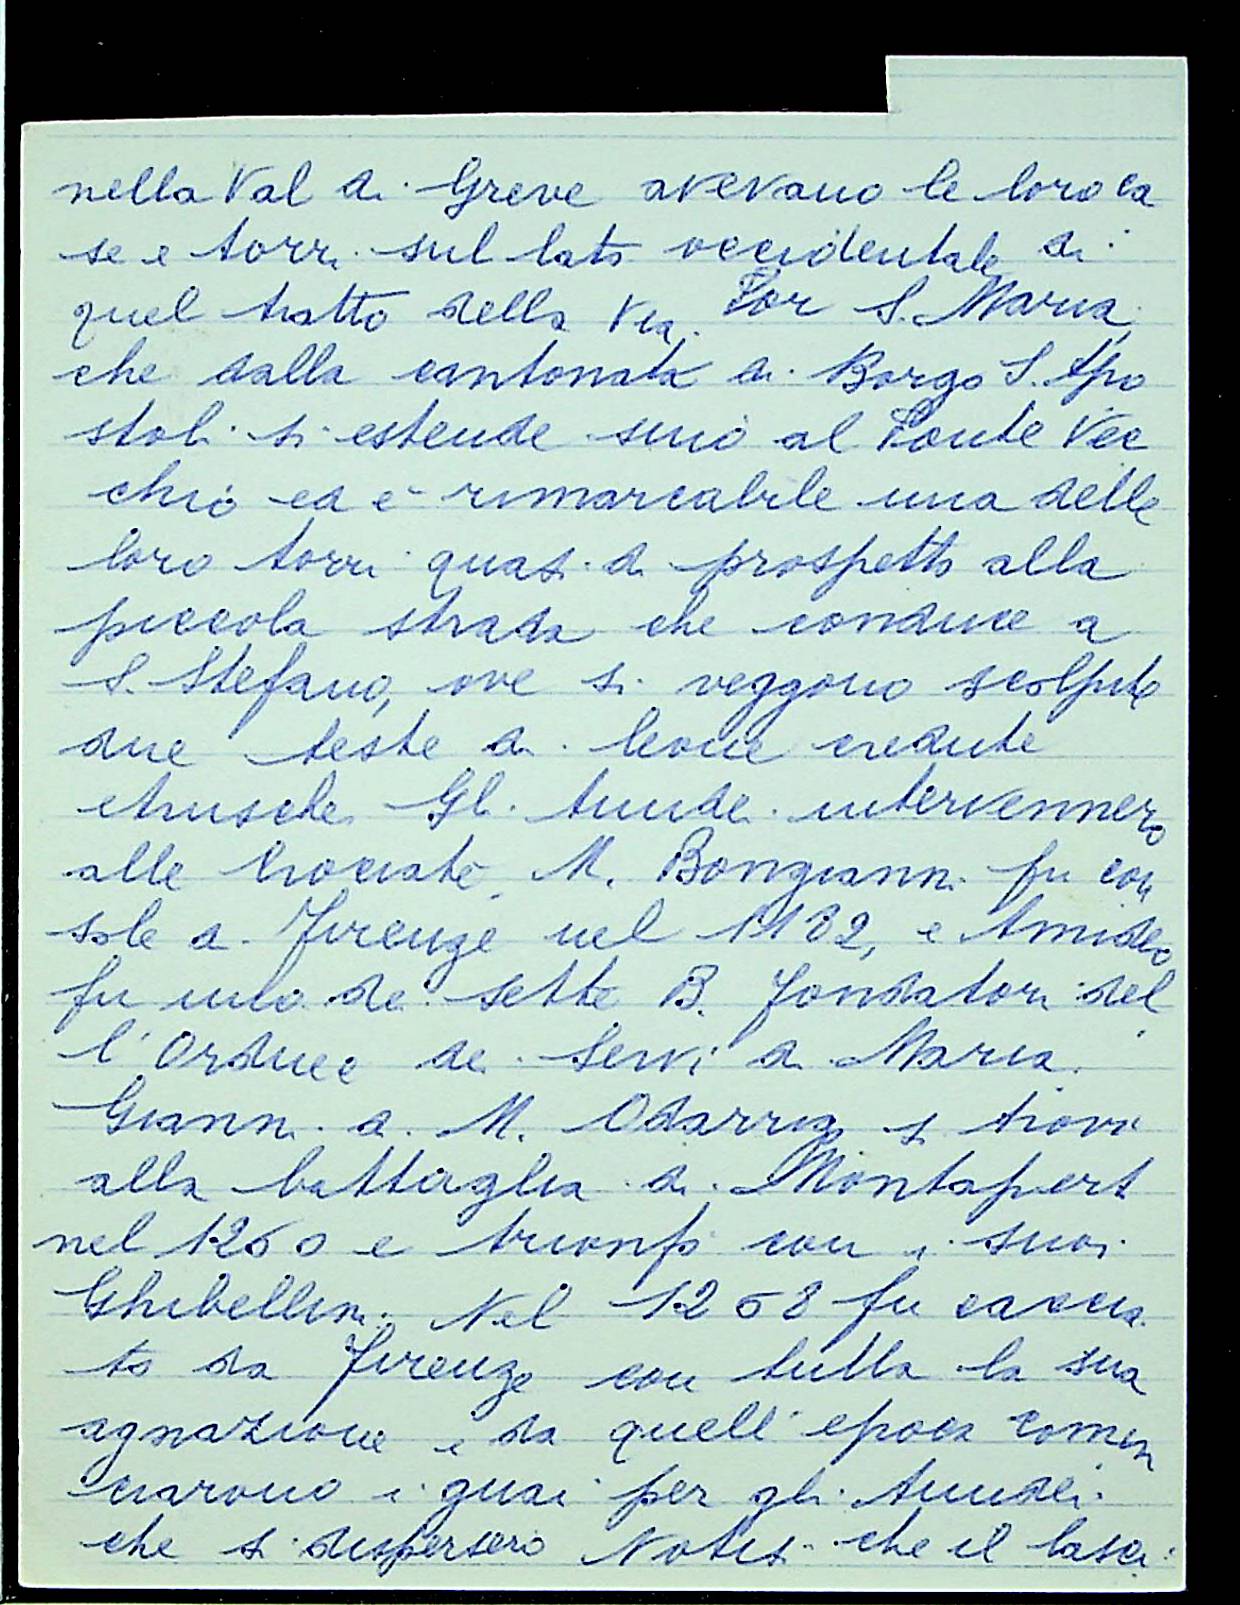 nella Val di Greve avevano le loro ca
se e torri sul lato occidentale di
quel tratto della Via Por S. Maria,
che dalla cantonata di Borgo S. Apo
stoli si estende sino al Ponte Vec
chio ed è rimarcabile una delle
loro torri quasi di prospetto alla
piccola strada che conduce a
S. Stefano, ove si veggono scolpite
due teste di leone credute
etrusche. Gli Amidei intervennero
alle Crociate. M. Bongianni fu con
sole a Firenze nel 1182, e Amideo
fu uno de' sette B. Fondatori del
l'Ordine dei Servi di Maria.
Gianni di M. Odarrigo si trovò
alla battaglia di Montaperti
nel 1260 e trionfò con i suoi
Ghibellini. Nel 1268 fu caccia
to da Firenze con tutta la sua
agnazione e da quell'epoca comin
ciarono i guai per gli Amidei
che si dispersero. Notisi che il lasci